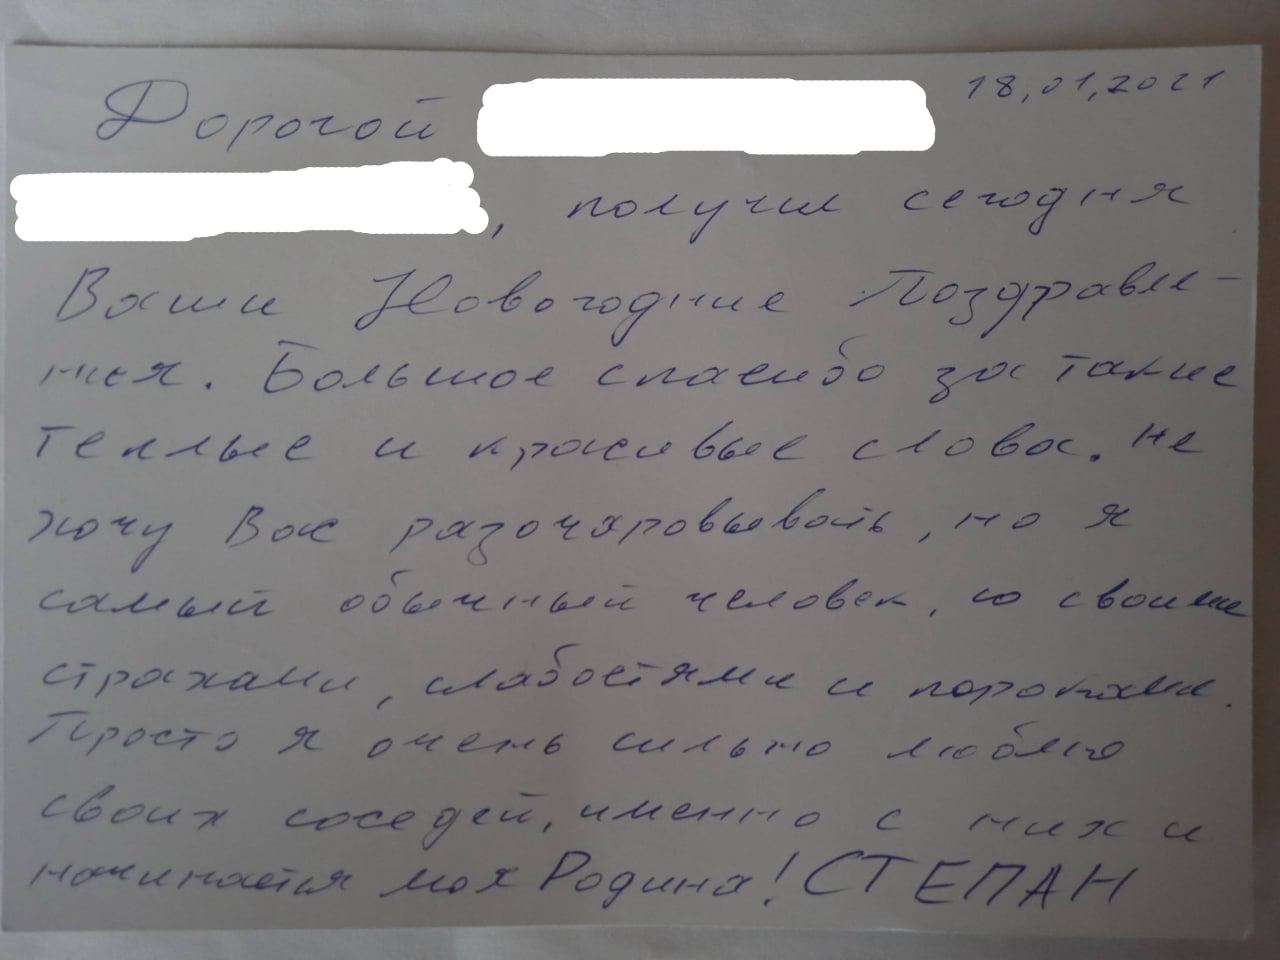 Дорогой 18.01.2021
, получил сегодня
Ваши Новогодние Поздравле-
ния. Большое спасибо за такие
теплые и красивые слова. Не
хочу Вас разочаровывать, но я
самый обычный человек, со своими
страхами, слабостями и пороками.
Просто я очень сильно люблю
своих соседей, именно с них и
начинается моя Родина! СТЕПАН